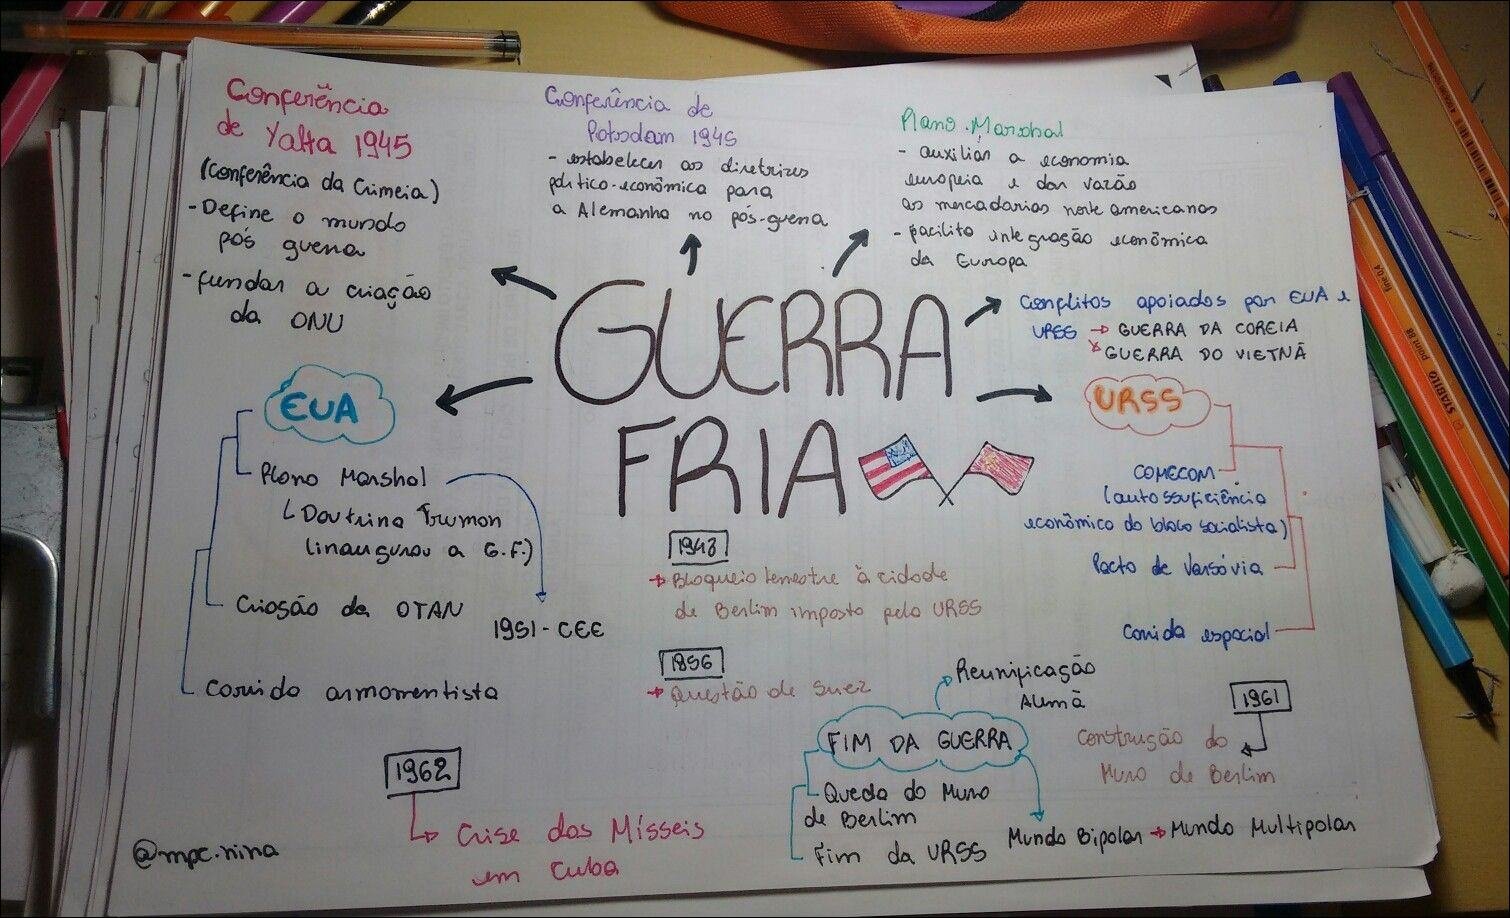 Conferência
de Yalta 1945
(Conferência da Crimeia)
- Define o mundo
pós guerra
- fundar a criação
da ONU
Conferência de
Potsdam 1945
- estabelecer as diretrizes
político-econômica para
a Alemanha no pós-guerra
Plano Marshal
- auxiliar a economia
europeia e dar vazão
as mercadorias norte americanas
- facilita integração econômica
da Europa
Conflitos apoiados por EUA e
URSS → GUERRA DA COREIA
GUERRA DO VIETNÃ
GUERRA
FRIA
EUA
Plano Marshal
Doutrina Truman
(inaugurou a G.F.)
Criação da OTAN
1951 - CEE
Corrida armamentista
URSS
COMECOM
(auto ssuficiência
econômico do bloco socialista)
Pacto de Varsóvia
Corrida espacial
→ Bloqueio terrestre à cidade
de Berlim imposto pela URSS
→ Questão de Suez
1961
Construção do
Muro de Berlim
FIM DA GUERRA
Reunificação
Alemã
Queda do Muro
de Berlim
Fim da URSS
Mundo Bipolar → Mundo Multipolar
1962
Crise dos Mísseis
em Cuba
@mpc.nina
STABILO
point 88
fine 0,4